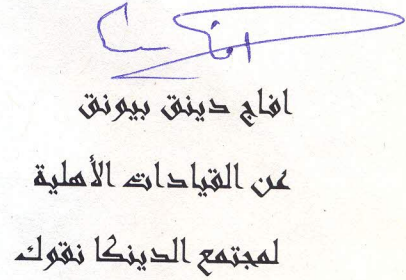 افاج دينق بيونق
عن القيادات الأهلية
لمجتمع الدينكا نقوك